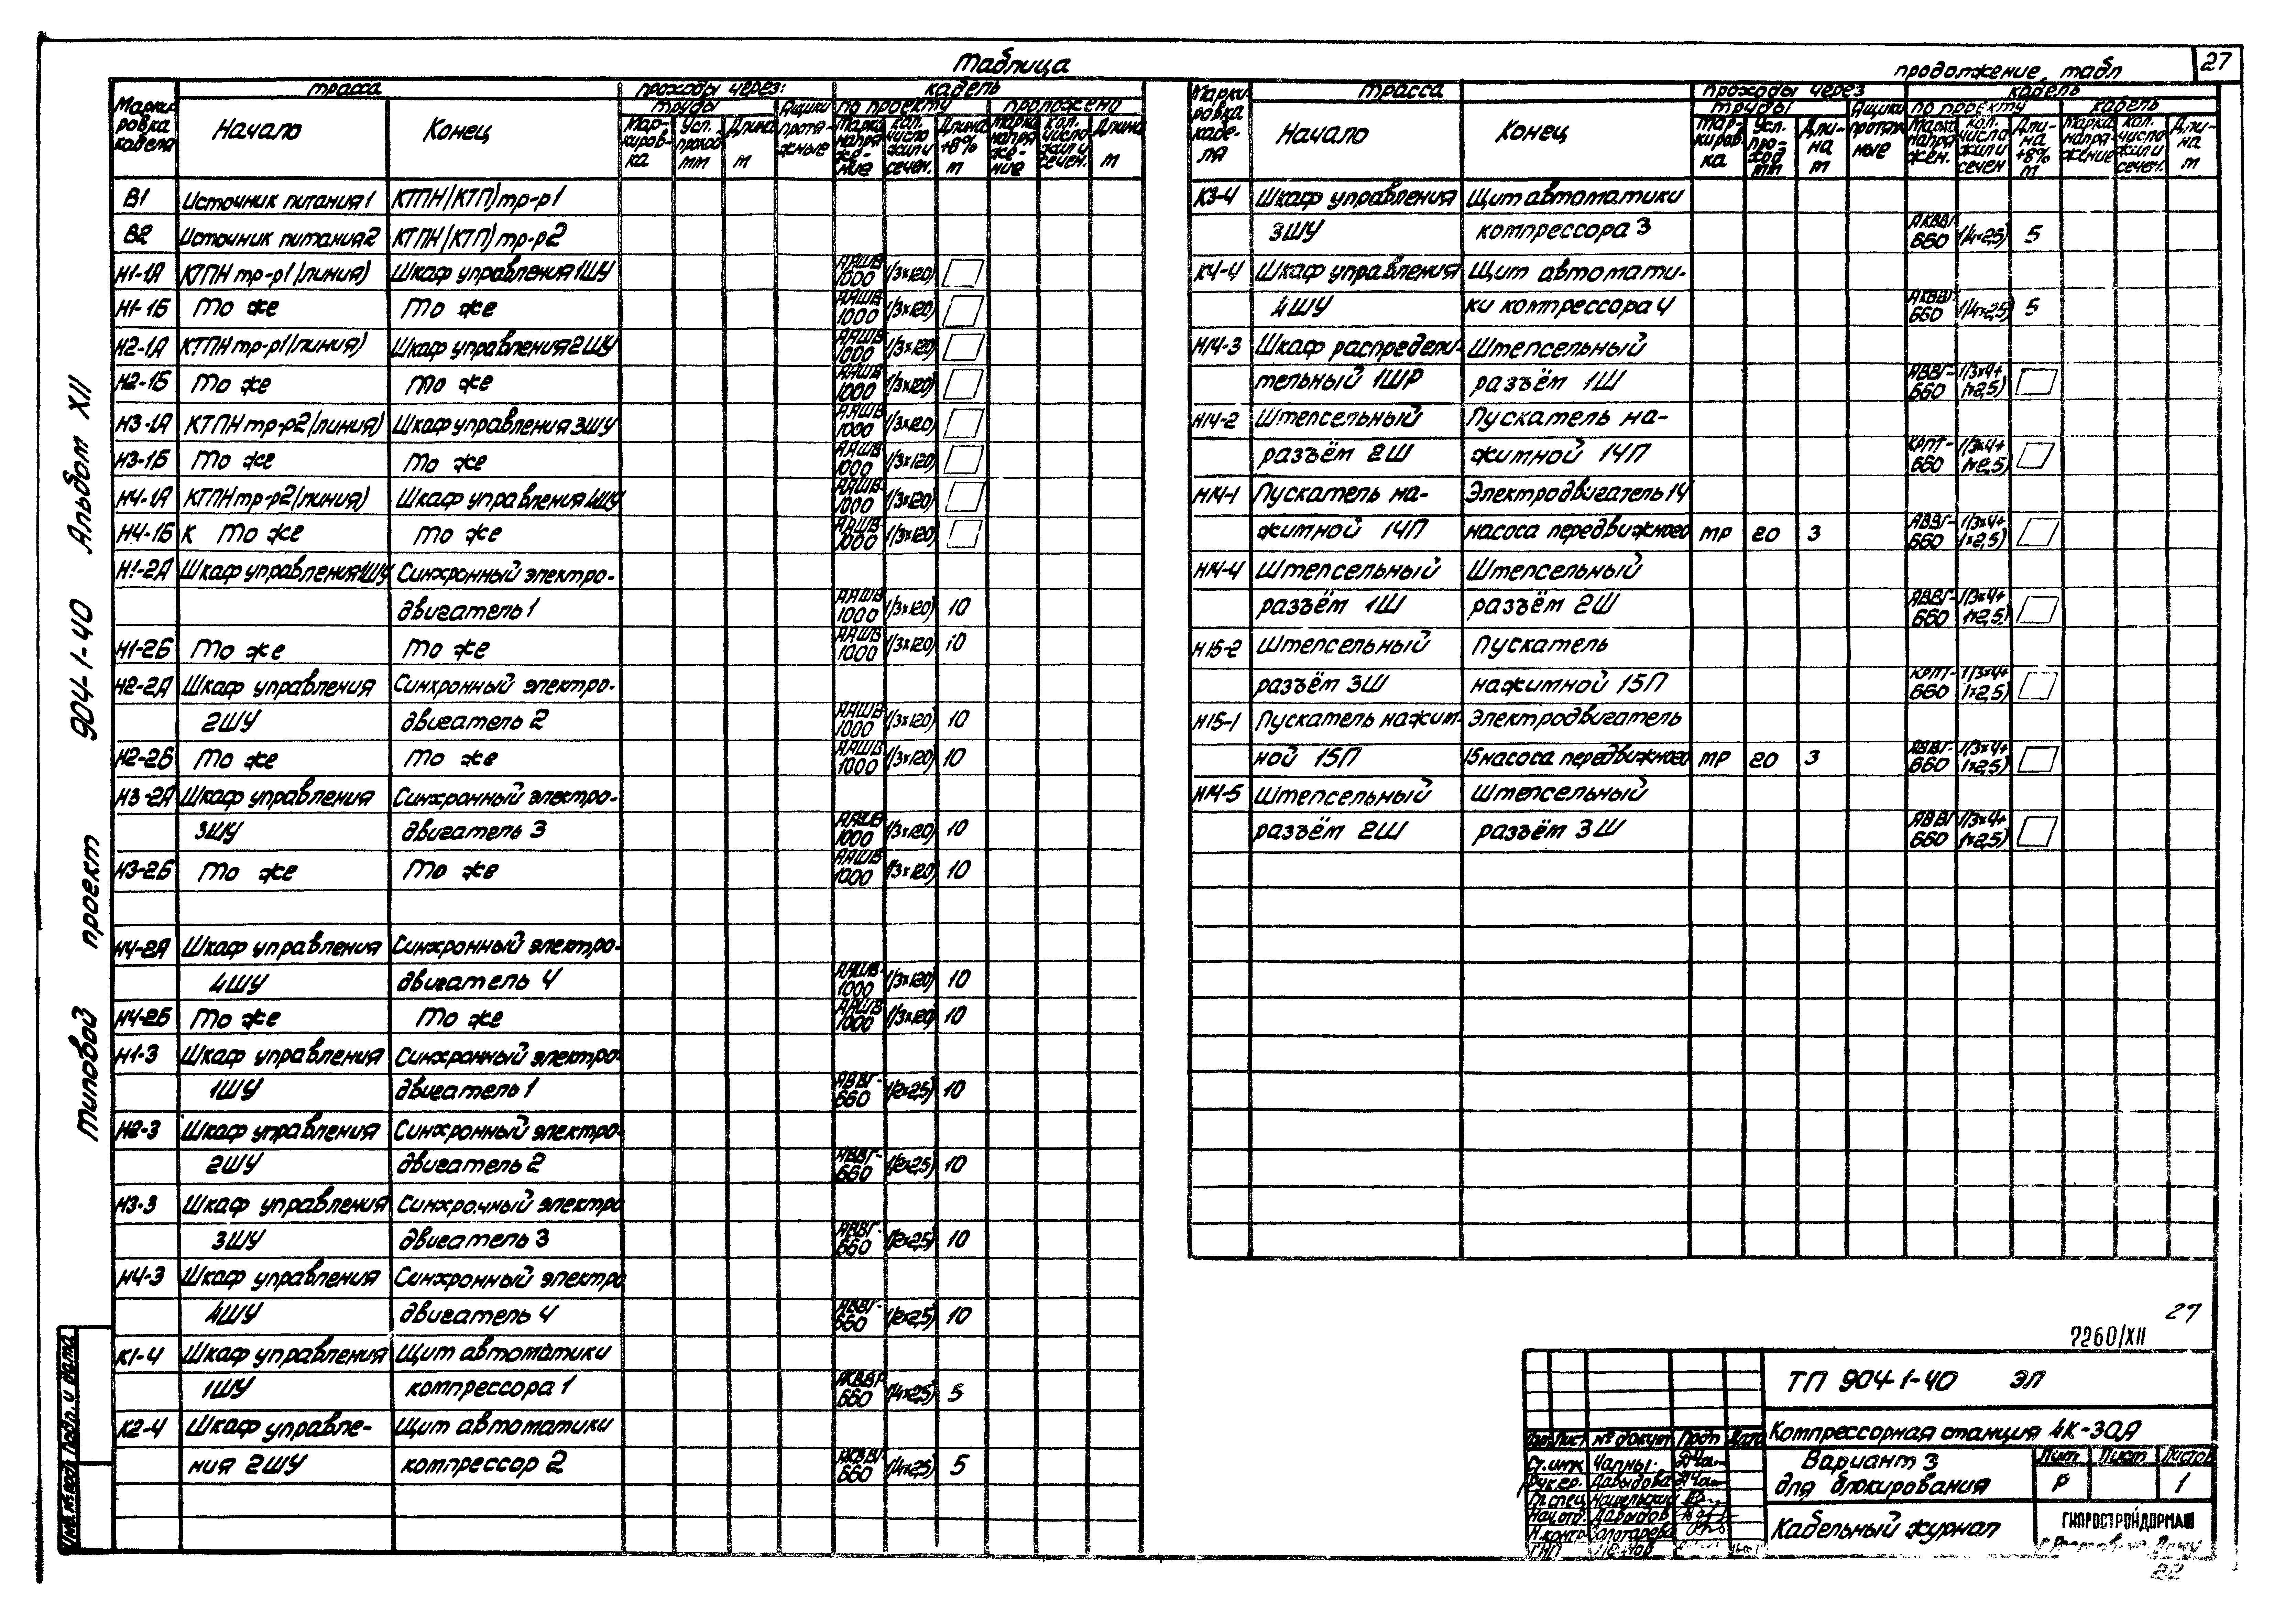 Таблица
продолжение табл
27
Маркировка кабеля | трасса | проходы через: | кабель
Начало | Конец | трубы | Ящики протяжные | по проекту | проложено
Маркировка | Усл. проход мм | Длина м | Марка напряжение | кол. число жил и сечен. | Длина +8% м | Марка напряжение | кол. число жил и сечен. | Длина м
В1 Источник питания 1 КТПН(КТП) тр-р1
В2 Источник питания 2 КТПН(КТП) тр-р2
Н1-1А КТПН тр-р1 (линия) Шкаф управления 1ШУ ААШВ 1000 1(3х120)
Н1-1Б То же То же ААШВ 1000 1(3х120)
Н2-1А КТПН тр-р1 (линия) Шкаф управления 2ШУ ААШВ 1000 1(3х120)
Н2-1Б То же То же ААШВ 1000 1(3х120)
Н3-1А КТПН тр-р2 (линия) Шкаф управления 3ШУ ААШВ 1000 1(3х120)
Н3-1Б То же То же ААШВ 1000 1(3х120)
Н4-1А КТПН тр-р2 (линия) Шкаф управления 4ШУ ААШВ 1000 1(3х120)
Н4-1Б К То же То же ААШВ 1000 1(3х120)
Н1-2А Шкаф управления 1ШУ Синхронный электро-
двигатель 1 ААШВ 1000 1(3х120) 10
Н1-2Б То же То же ААШВ 1000 1(3х120) 10
Н2-2А Шкаф управления Синхронный электро-
2ШУ двигатель 2 ААШВ 1000 1(3х120) 10
Н2-2Б То же То же ААШВ 1000 1(3х120) 10
Н3-2А Шкаф управления Синхронный электро-
3ШУ двигатель 3 ААШВ 1000 1(3х120) 10
Н3-2Б То же То же ААШВ 1000 1(3х120) 10
Н4-2А Шкаф управления Синхронный электро-
4ШУ двигатель 4 ААШВ 1000 1(3х120) 10
Н4-2Б То же То же ААШВ 1000 1(3х120) 10
Н1-3 Шкаф управления Синхронный электро-
1ШУ двигатель 1 АВВГ-660 1(2х2,5) 10
Н2-3 Шкаф управления Синхронный электро-
2ШУ двигатель 2 АВВГ-660 1(2х2,5) 10
Н3-3 Шкаф управления Синхронный электро
3ШУ двигатель 3 АВВГ-660 1(2х2,5) 10
Н4-3 Шкаф управления Синхронный электро
4ШУ двигатель 4 АВВГ-660 1(2х2,5) 10
К1-4 Шкаф управления Щит автоматики
1ШУ компрессора 1 АКВВГ 660 1(4х2,5) 5
К2-4 Шкаф управле- Щит автоматики
ния 2ШУ компрессор 2 АКВВГ 660 1(4х2,5) 5
Маркировка кабеля | трасса | проходы через | кабель
Начало | Конец | трубы | Ящики протяжные | по проекту | кабель
Маркировка | Усл. проход мм | Длина м | Марка напряжен. | кол. число жил и сечен | Длина +8% м | Марка напряжение | кол. число жил и сечен. | Длина м
К3-4 Шкаф управления Щит автоматики
3ШУ компрессора 3 АКВВГ 660 1(4х2,5) 5
К4-4 Шкаф управления Щит автомати-
4ШУ ки компрессора 4 АКВВГ 660 1(4х2,5) 5
Н14-3 Шкаф распредели- Штепсельный
тельный 1ШР разъём 1Ш АВВГ-660 1(3х4+1х2,5)
Н14-2 Штепсельный Пускатель на-
разъём 2Ш житной 14П КРПТ-660 1(3х4+1х2,5)
Н14-1 Пускатель на- Электродвигатель 14
житной 14П насоса передвижного тр 20 3 АВВГ-660 1(3х4+1х2,5)
Н14-4 Штепсельный Штепсельный
разъём 1Ш разъём 2Ш АВВГ-660 1(3х4+1х2,5)
Н15-2 Штепсельный Пускатель
разъём 3Ш нажитной 15П КРПТ-660 1(3х4+1х2,5)
Н15-1 Пускатель нажит- Электродвигатель
ной 15П 15 насоса передвижного тр 20 3 АВВГ-660 1(3х4+1х2,5)
Н14-5 Штепсельный Штепсельный
разъём 2Ш разъём 3Ш АВВГ 660 1(3х4+1х2,5)
Типовой проект 904-1-40 Альбом XII
Подп. и дата
27
7260/XII
ТП 904-1-40 ЭЛ
Компрессорная станция 4К-30А
Вариант 3
для блокирования
Кабельный журнал
Лист № докум Подп Дата
Ст. инж Чапны
Рук. гр. Давыдова
Гл. спец
Нач. отд. Давыдов
Н. контр Золотарева
ГИП
Лит Лист Листов
Р 1
ГИПРОСТРОЙДОРМАШ
22